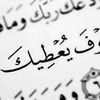 دَّعَكَ رَبُّكَ وَمَا
وْفَ يُعْطِيكَ